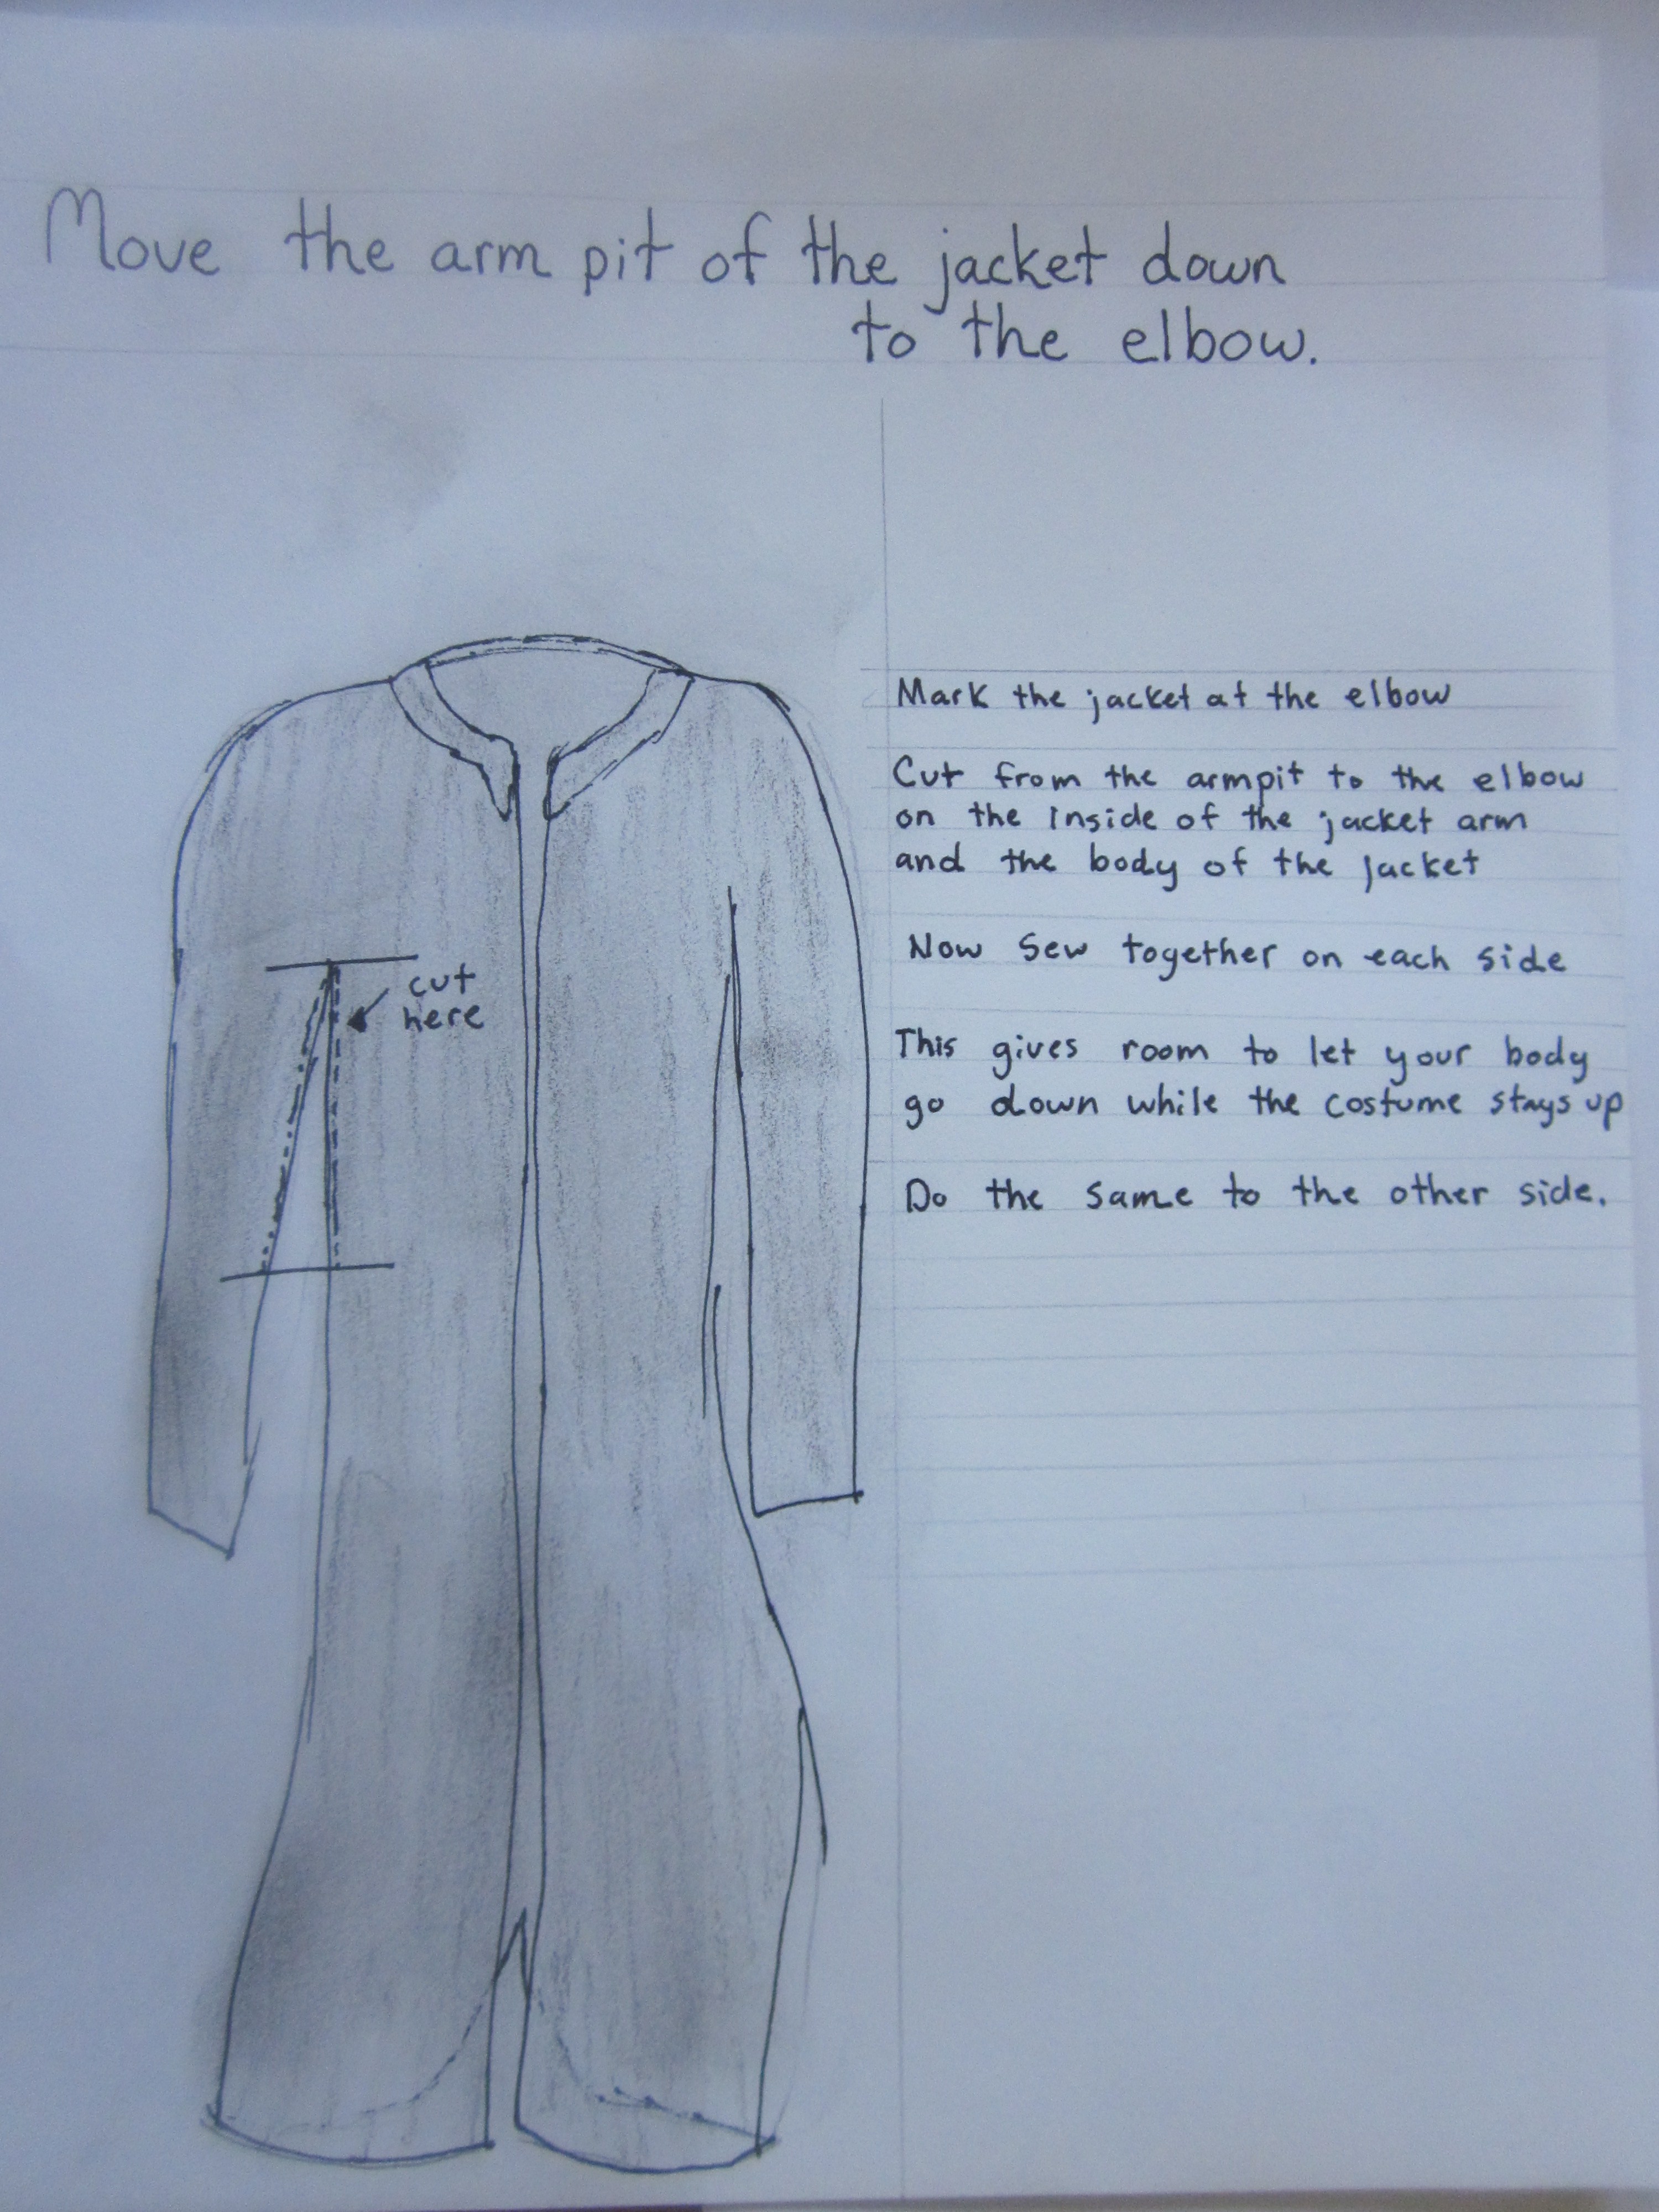 Move the arm pit of the jacket down
to the elbow.
Mark the jacket at the elbow
Cut from the armpit to the elbow
on the inside of the jacket arm
and the body of the jacket
Now sew together on each side
This gives room to let your body
go down while the costume stays up
Do the same to the other side.
cut
here